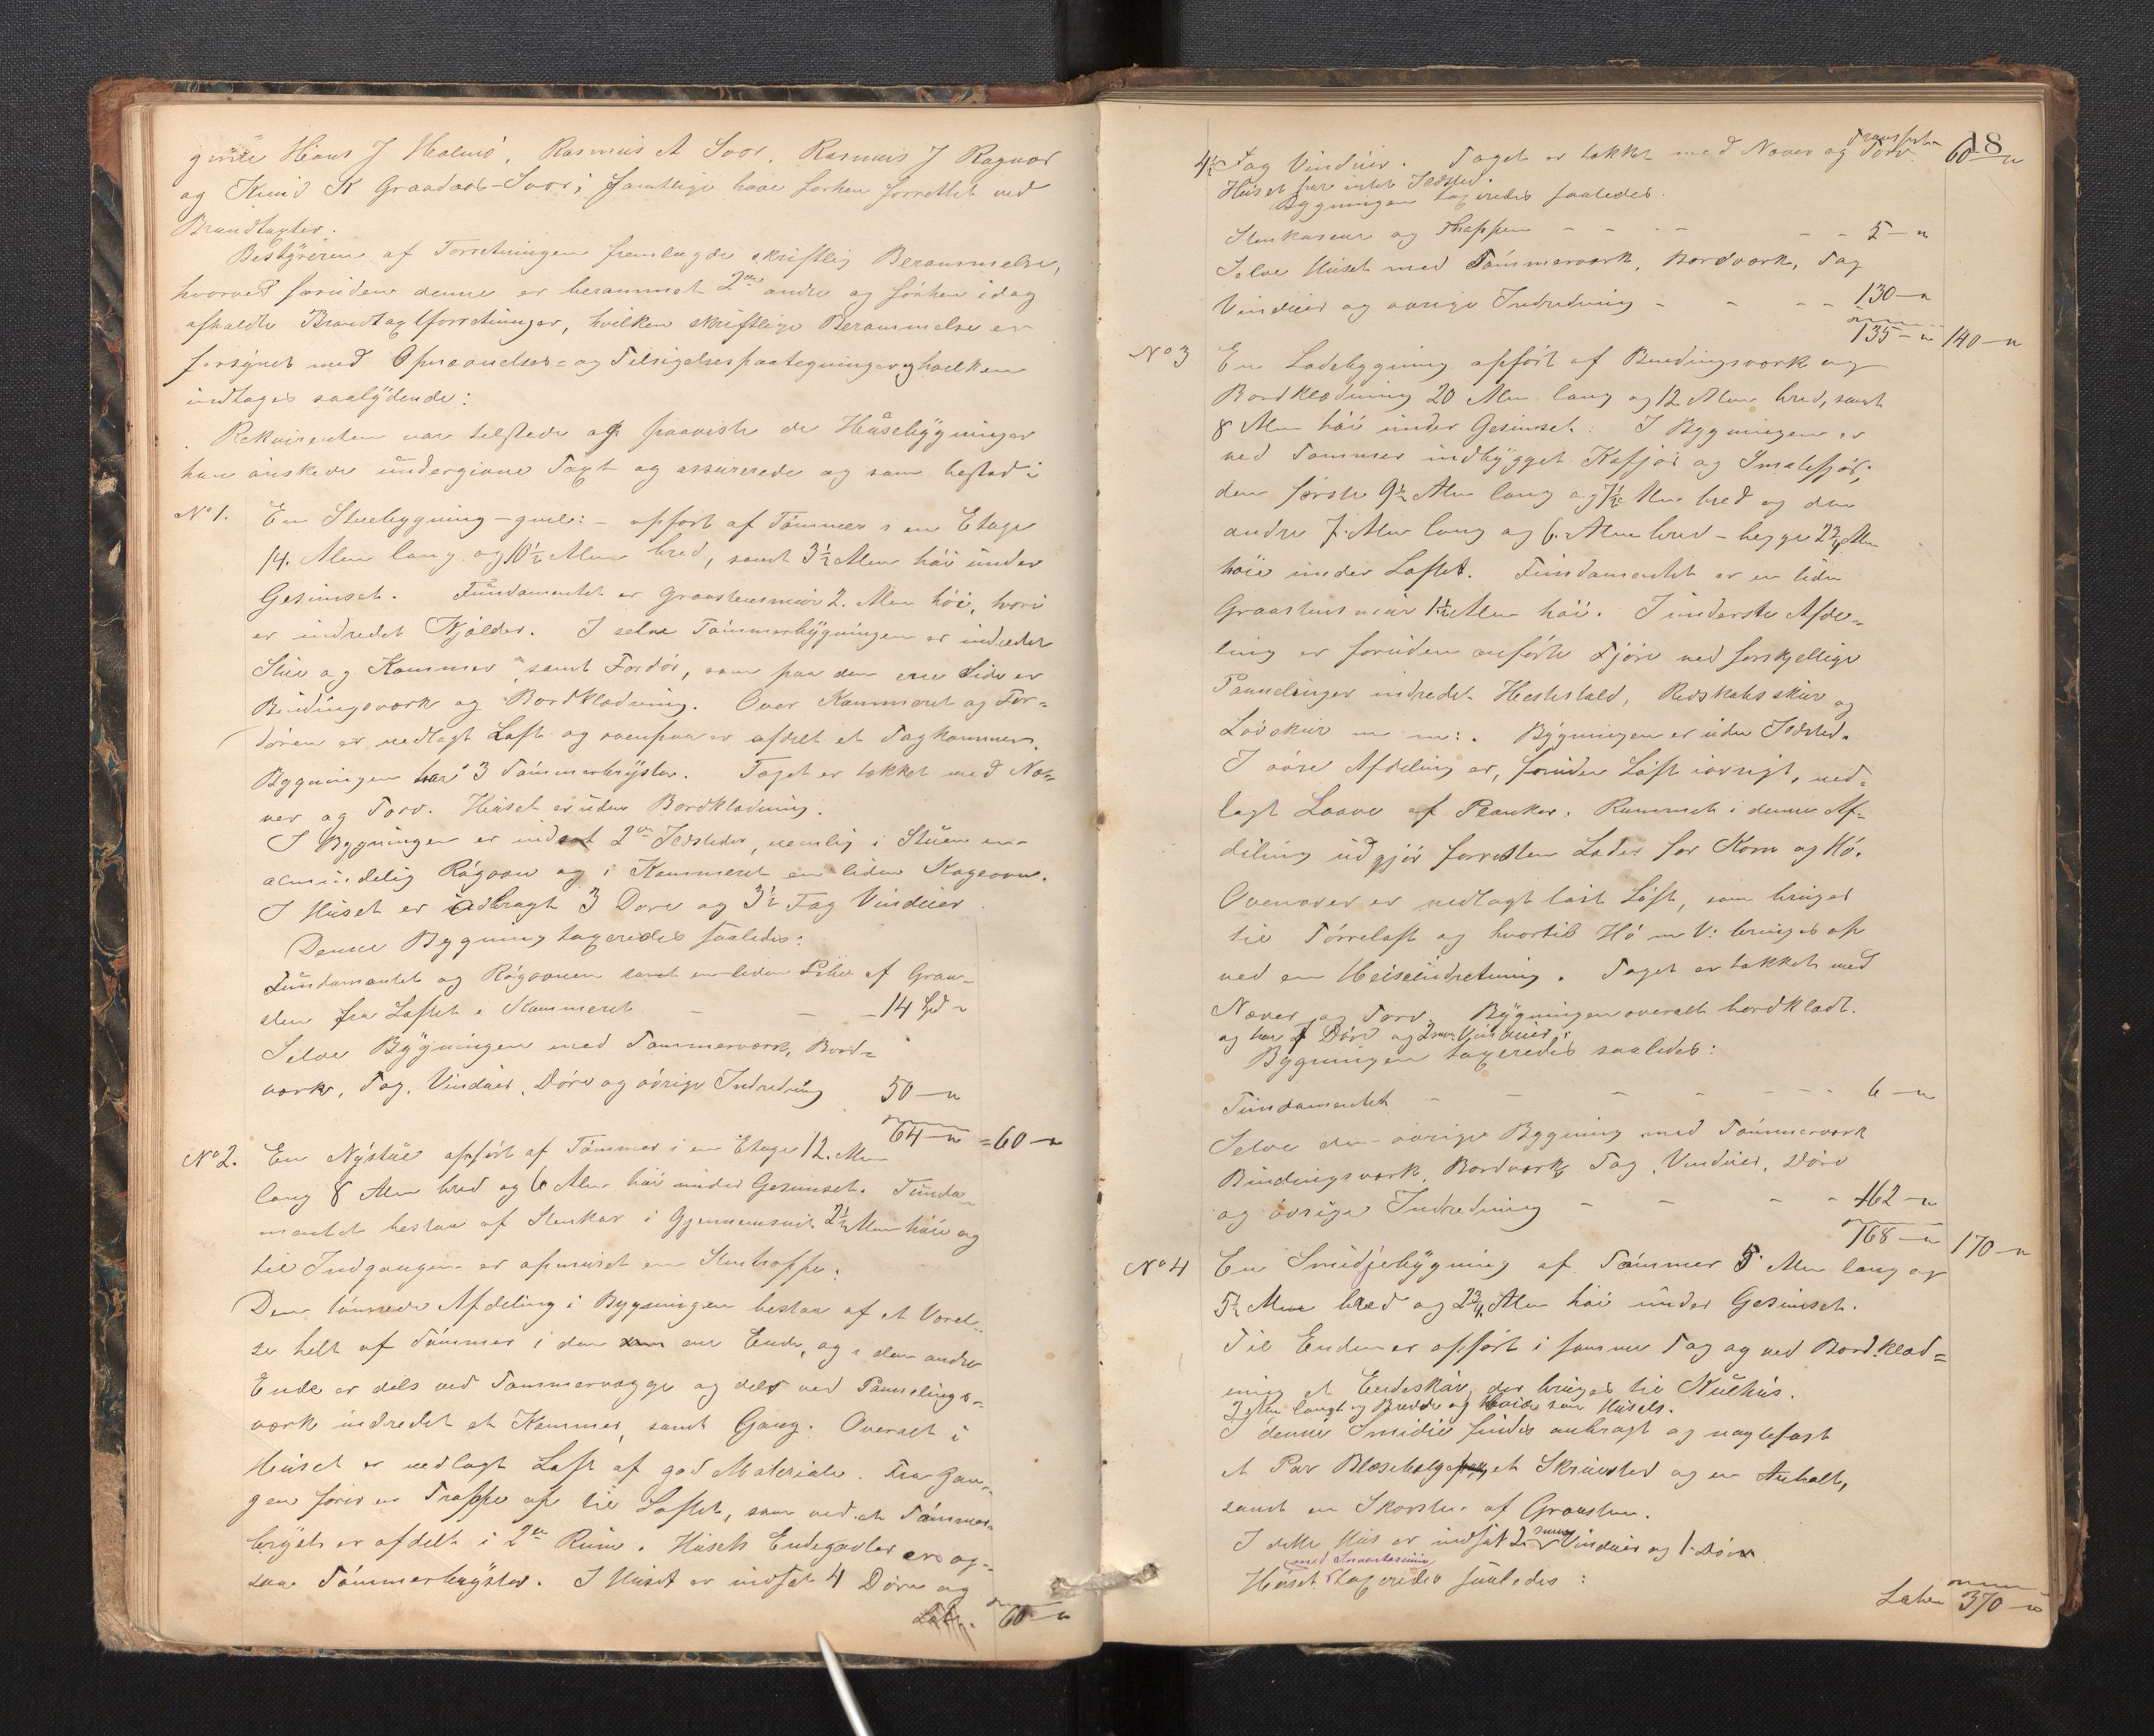 Hans J Holmö, Rasmus A Soor, Rasmus J Ragnor
og Knud K Graadas-Soor; samtlige have forhen forrettet ved
Brandtaxter.
Bestyreren af Forretningen fremlagde skriftlig Berammelse,
hvorved foruden denne er berammet 2de andre og forhen idag
afholdte Brandtaxtforretninger, hvilken skriftlige Berammelse er
forsynet med Opnævnelses- og Tilsigelsespaategninger og hvilken
indtages saalydende:
Rekvirenten var tilstede og paaviste de Husebygninger
han önskede undergivne Taxt og assurerede og som bestod i
No 1. En Stuebygning - gml: - opfört af Tömmer i en Etage
14. Alen lang og 10½ Alen bred, samt 3½ Alen höi under
Gesimset. Fundamentet er Graastensmur 2. Alen höi, hvori
er indredet Kjelder. I selve Tömmerbygningen er indredet
Stue og Kammer, samt Fordör, som paa den ene Side er
Bindingsværk og Bordklædning. Over Kammeret og For=
dören er nedlagt Loft og ovenpaa er afdelt et Tagkammer.
Bygningen har 3 Tömmerbryster. Taget er tækket med Næ=
ver og Torv. Huset er uden Bordklædning.
I Bygningen er indsat 2de Ildsteder, nemlig i Stuen en
almindelig Rögovn og i Kammeret en liden Kogeovn.
I Huset er indbragt 3 Döre og 3½ Fag Vinduer
Denne Bygning taxeredes saaledes:
Fundamentet og Rögovnen samt en liden Pibe af Graa=
sten fra Loftet i Kammeret - - - 14 Spd "
Selve Bygningen med Tömmerværk, Bord=
værk, Tag, Vinduer, Döre og övrige Indredning 50 - "
64 - " = 60 - "
No 2. En Nystue opfört af Tömmer i en Etage 12. Alen
lang 8 Alen bred og 6 Alen höi under Gesimset. Funda=
mentet bestaar af Stenkar i Gjennemsnit 2½ Alen höie og
til Indgangen er opmuret en Stentrappe.
Den tömrede Afdeling i Bygningen bestaar af et Værel=
se helt af Tömmer i den ene Ende, og i den andre
Ende er dels ved Tömmervægge og dels ved Paneelings=
værk indredet et Kammer, samt Gang. Overalt i
Huset er nedlagt Loft af god Materiale. Fra Gan=
gen förer en Trappe op til Loftet, som ved et Tömmer=
bryst er afdelt i 2de Rum. Husets Endegavler er og=
saa Tömmerbryster. I Huset er indsat 4 Döre og
Lat. 60 - "
18
Transporten
4½ Fag Vinduer. Taget er tækket med Næver og Torv. 60 - "
Huset har intet Ildsted.
Bygningen taxeredes saaledes.
Stenkarene og Trappen - - - - - 5 - "
Selve Huset med Tömmerværk, Bordværk, Tag
Vinduer og övrige Indredning - - - - 130 - "
135 - " 140 - "
No 3 En Ladebygning opfört af Bindingsværk og
Bordklædning 20 Alen lang og 12 Alen bred, samt
8 Alen höi under Gesimset. I Bygningen er
ved Tömmer indbygget Kofjös og Smalefjös;
den förste 9½ Alen lang og 7½ Alen bred og den
andre 7. Alen lang og 6. Alen bred - begge 2¾ Alen
höie under Loftet. Fundamentet er en liden
Graastensmur 1½ Alen höi. I underste Afde=
ling er foruden anförte Fjöse ved forskjellige
Paanelinger indredet Hestestald, Redskabsskur og
Lövskur m m:. Bygningen er uden Ildsted.
I övre Afdeling er, foruden Loft iövrigt, ned=
lagt Laave af Planker. Rummet i denne Af=
deling udgjör forresten Lader for Korn og Hö.
Ovenover er nedlagt löst Loft, som bruges
til Törreloft og hvortil Hö m V: bringes op
ved en Heiseindretning. Taget er tækket med
Næver og Torv. Bygningen overalt bordklædt.
og har 7 Döre og 2 smaa Vinduer.
Bygningen taxeredes saaledes:
Fundamentet - - - - - - 6 - "
Selve den övrige Bygning med Tömmerværk
Bindingsværk, Bordværk, Tag, Vinduer, Döre
og övrige Indredning - - - - 162 - "
168 - " 170 - "
No 4 En Smidjebygning af Tömmer 5 Alen lang og
5½ Alen bred og 2¾ Alen höi under Gesimset.
Til Enden er opfört i samme Tag og ved Bordklæd=
ning et Endeskur, der bruges til Kulhus.
3 Alen langt og Bredde og Höide som Husets.
I denne Smidie findes anbragt og naglefast
et Par Blæsebelge, et Skruested og en Ambolt,
samt en Skorsten af Graasten.
I dette Hus er indsat 2 smaa Vinduer og 1. Dör.
med Inventarium
Huset taxeredes saaledes:
Latus 370 - "